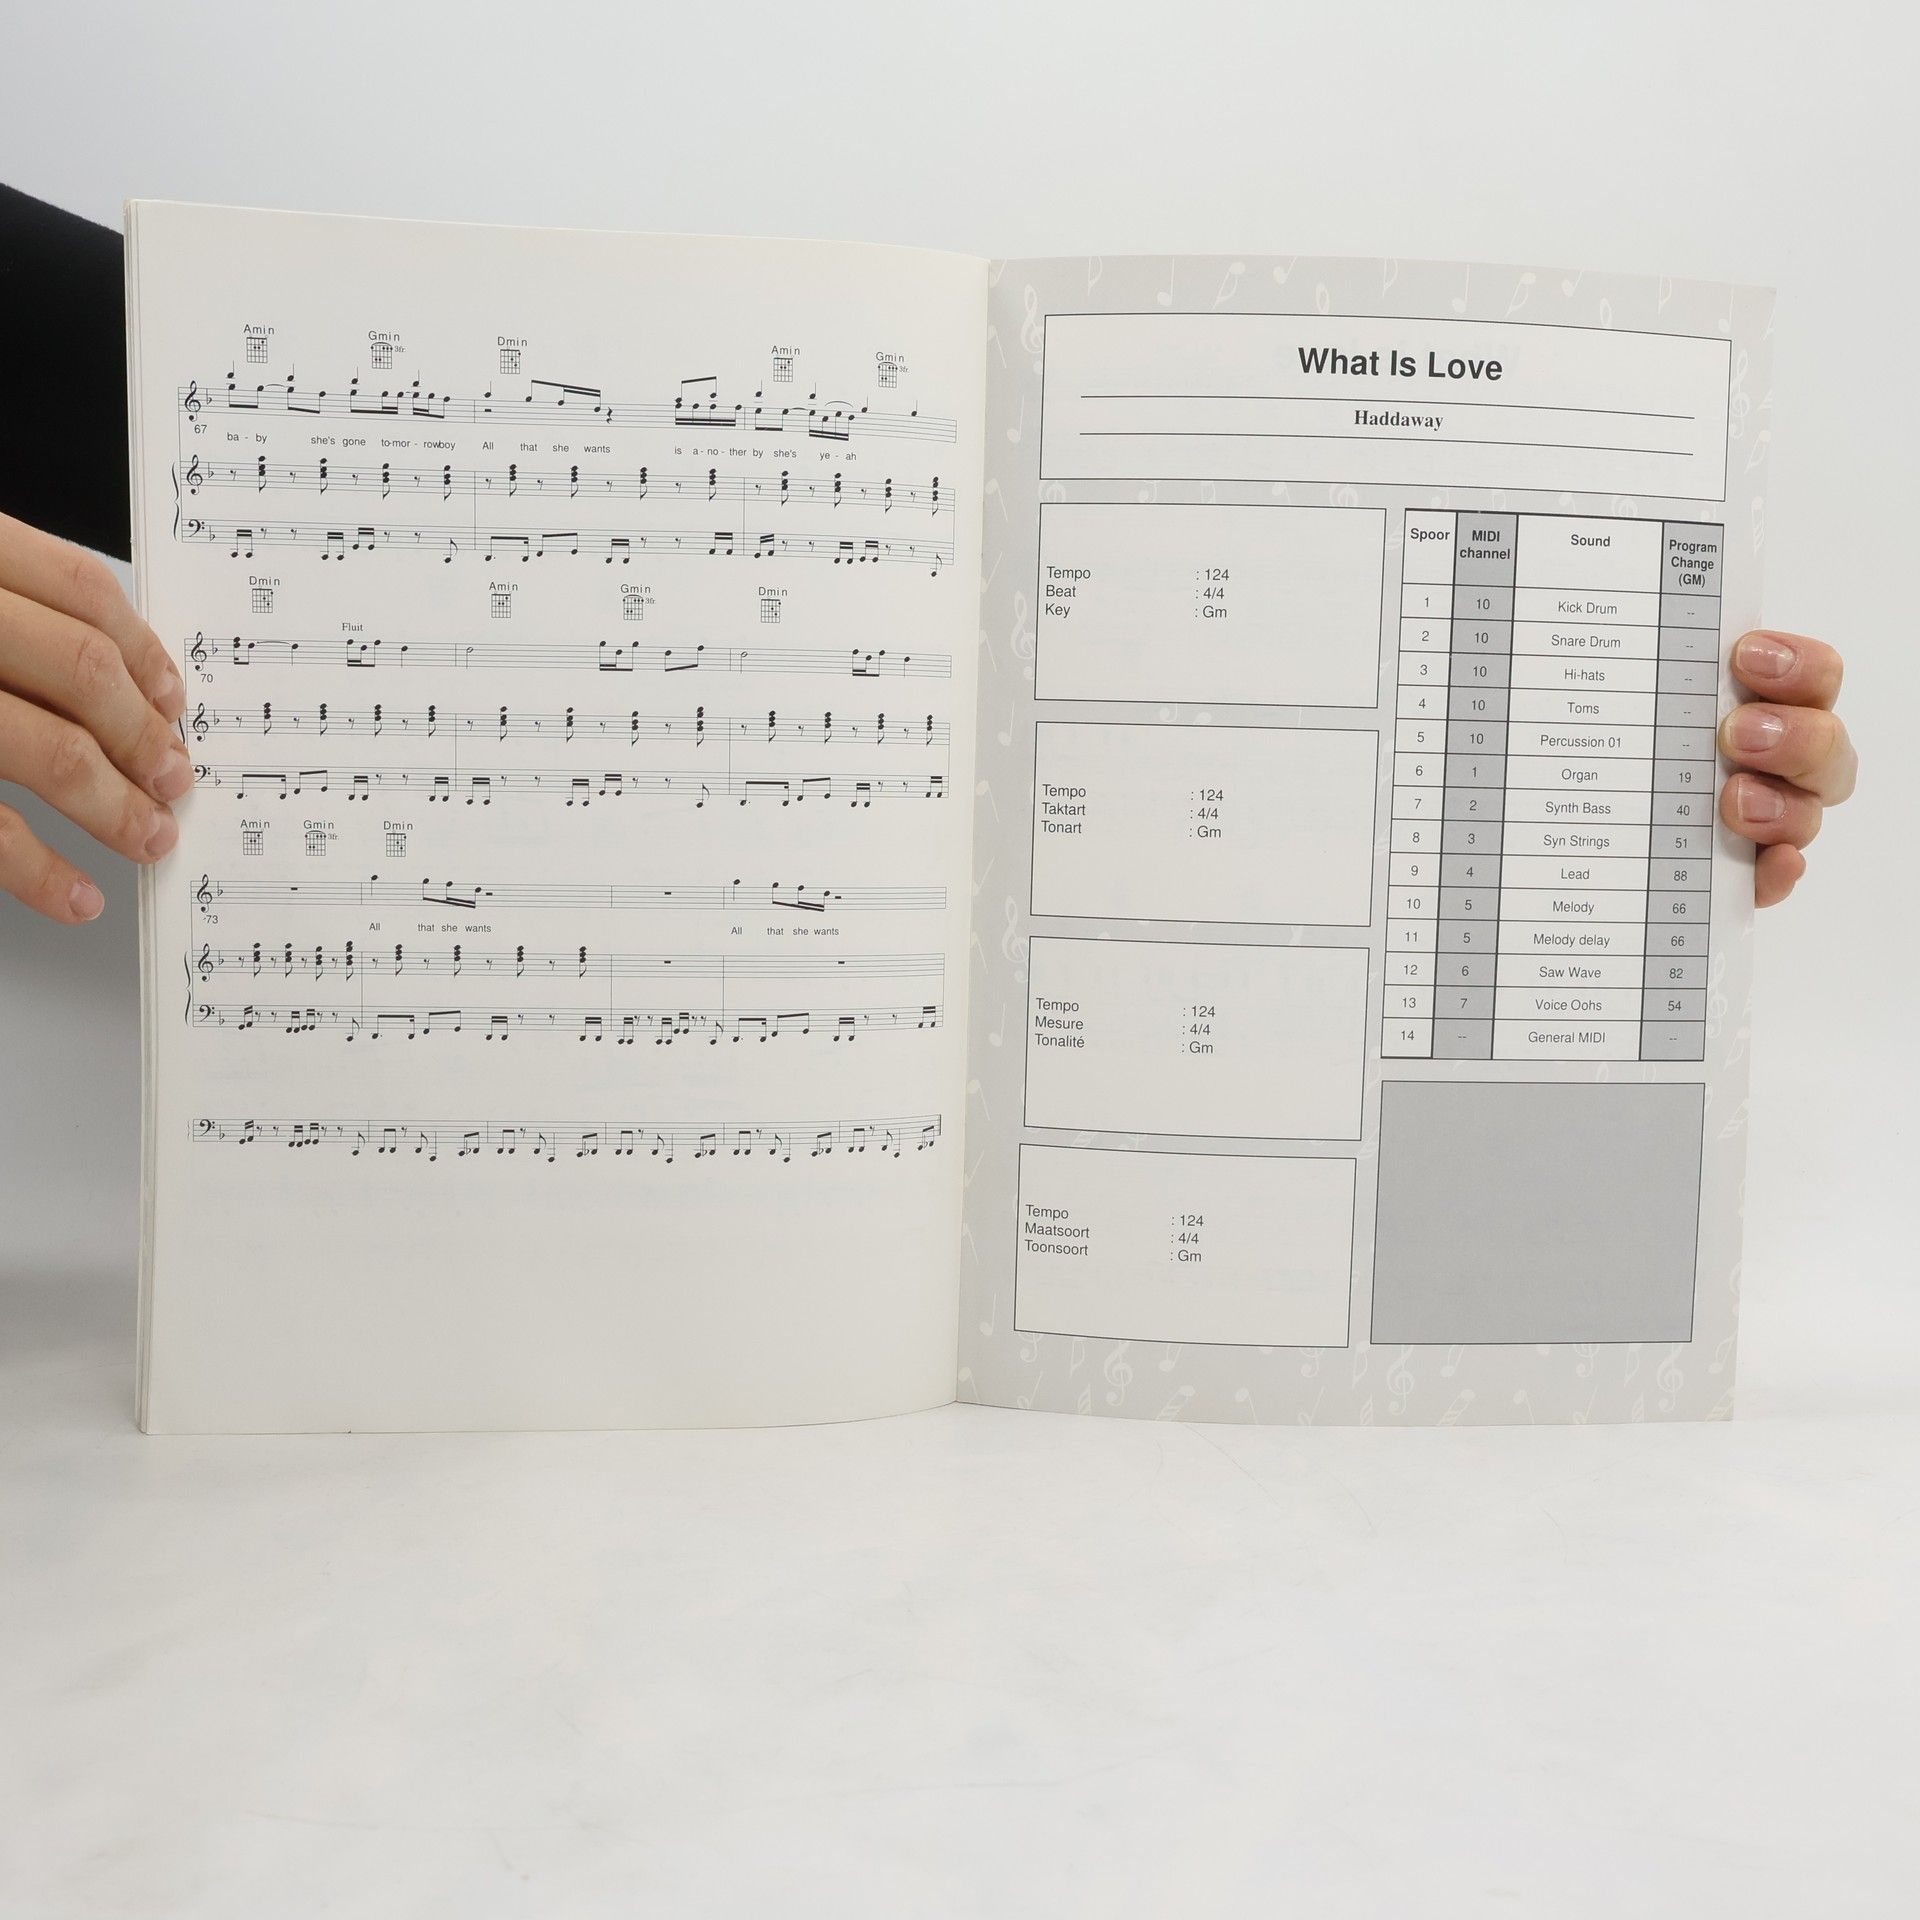 Amin Gmin 3fr. Dmin Amin Gmin 3fr.
67
ba - by she's gone to-mor - rowboy All that she wants is a - no - ther by she's ye - ah
Dmin Amin Gmin 3fr. Dmin
Fluit
70
Amin Gmin 3fr. Dmin
73
All that she wants All that she wants
What Is Love
Haddaway
Tempo : 124
Beat : 4/4
Key : Gm
Tempo : 124
Taktart : 4/4
Tonart : Gm
Tempo : 124
Mesure : 4/4
Tonalité : Gm
Tempo : 124
Maatsoort : 4/4
Toonsoort : Gm
Spoor MIDI channel Sound Program Change (GM)
1 10 Kick Drum --
2 10 Snare Drum --
3 10 Hi-hats --
4 10 Toms --
5 10 Percussion 01 --
6 1 Organ 19
7 2 Synth Bass 40
8 3 Syn Strings 51
9 4 Lead 88
10 5 Melody 66
11 5 Melody delay 66
12 6 Saw Wave 82
13 7 Voice Oohs 54
14 -- General MIDI --